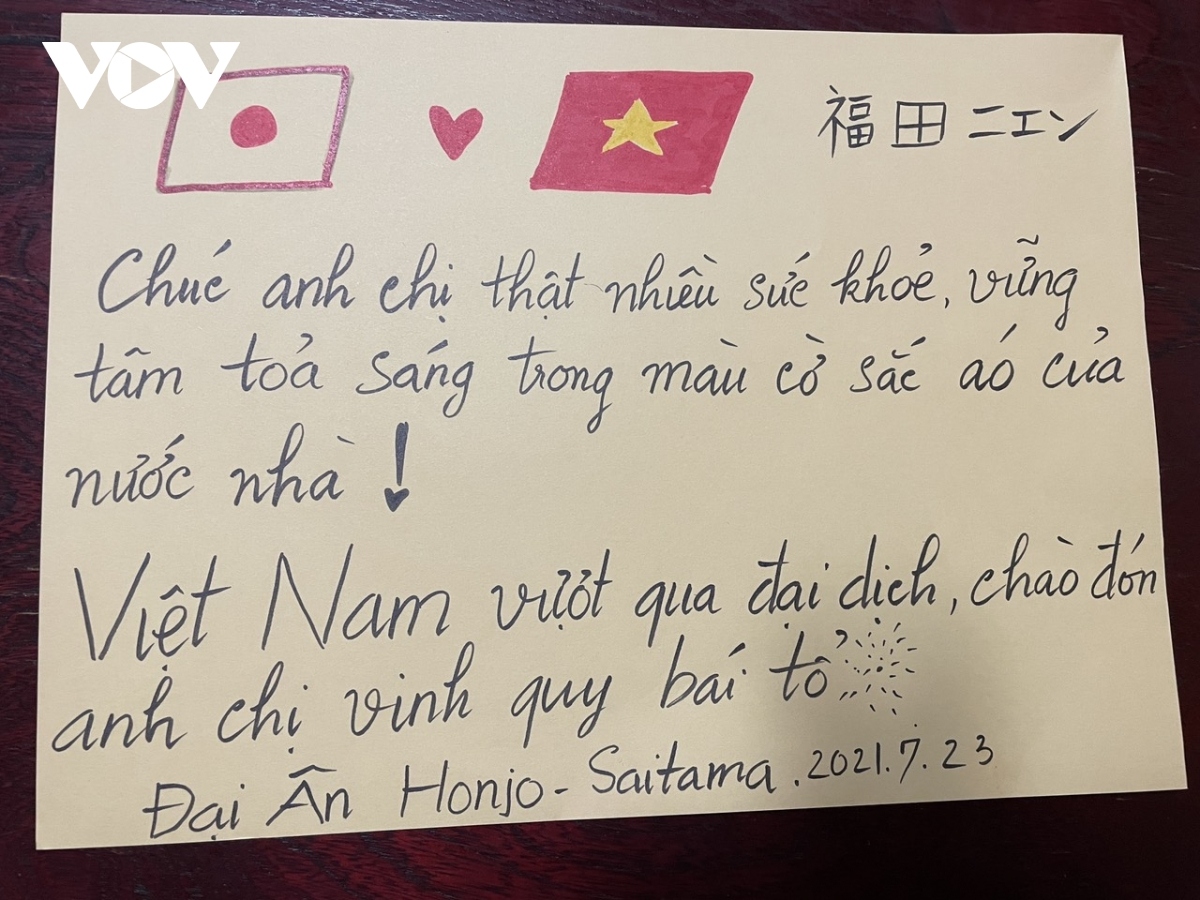 VOV
福田ニエン
Chúc anh chị thật nhiều sức khỏe, vững
tâm tỏa sáng trong màu cờ sắc áo của
nước nhà!
Việt Nam vượt qua đại dịch, chào đón
anh chị vinh quy bái tổ
Đại Ân Honjo - Saitama. 2021.7.23